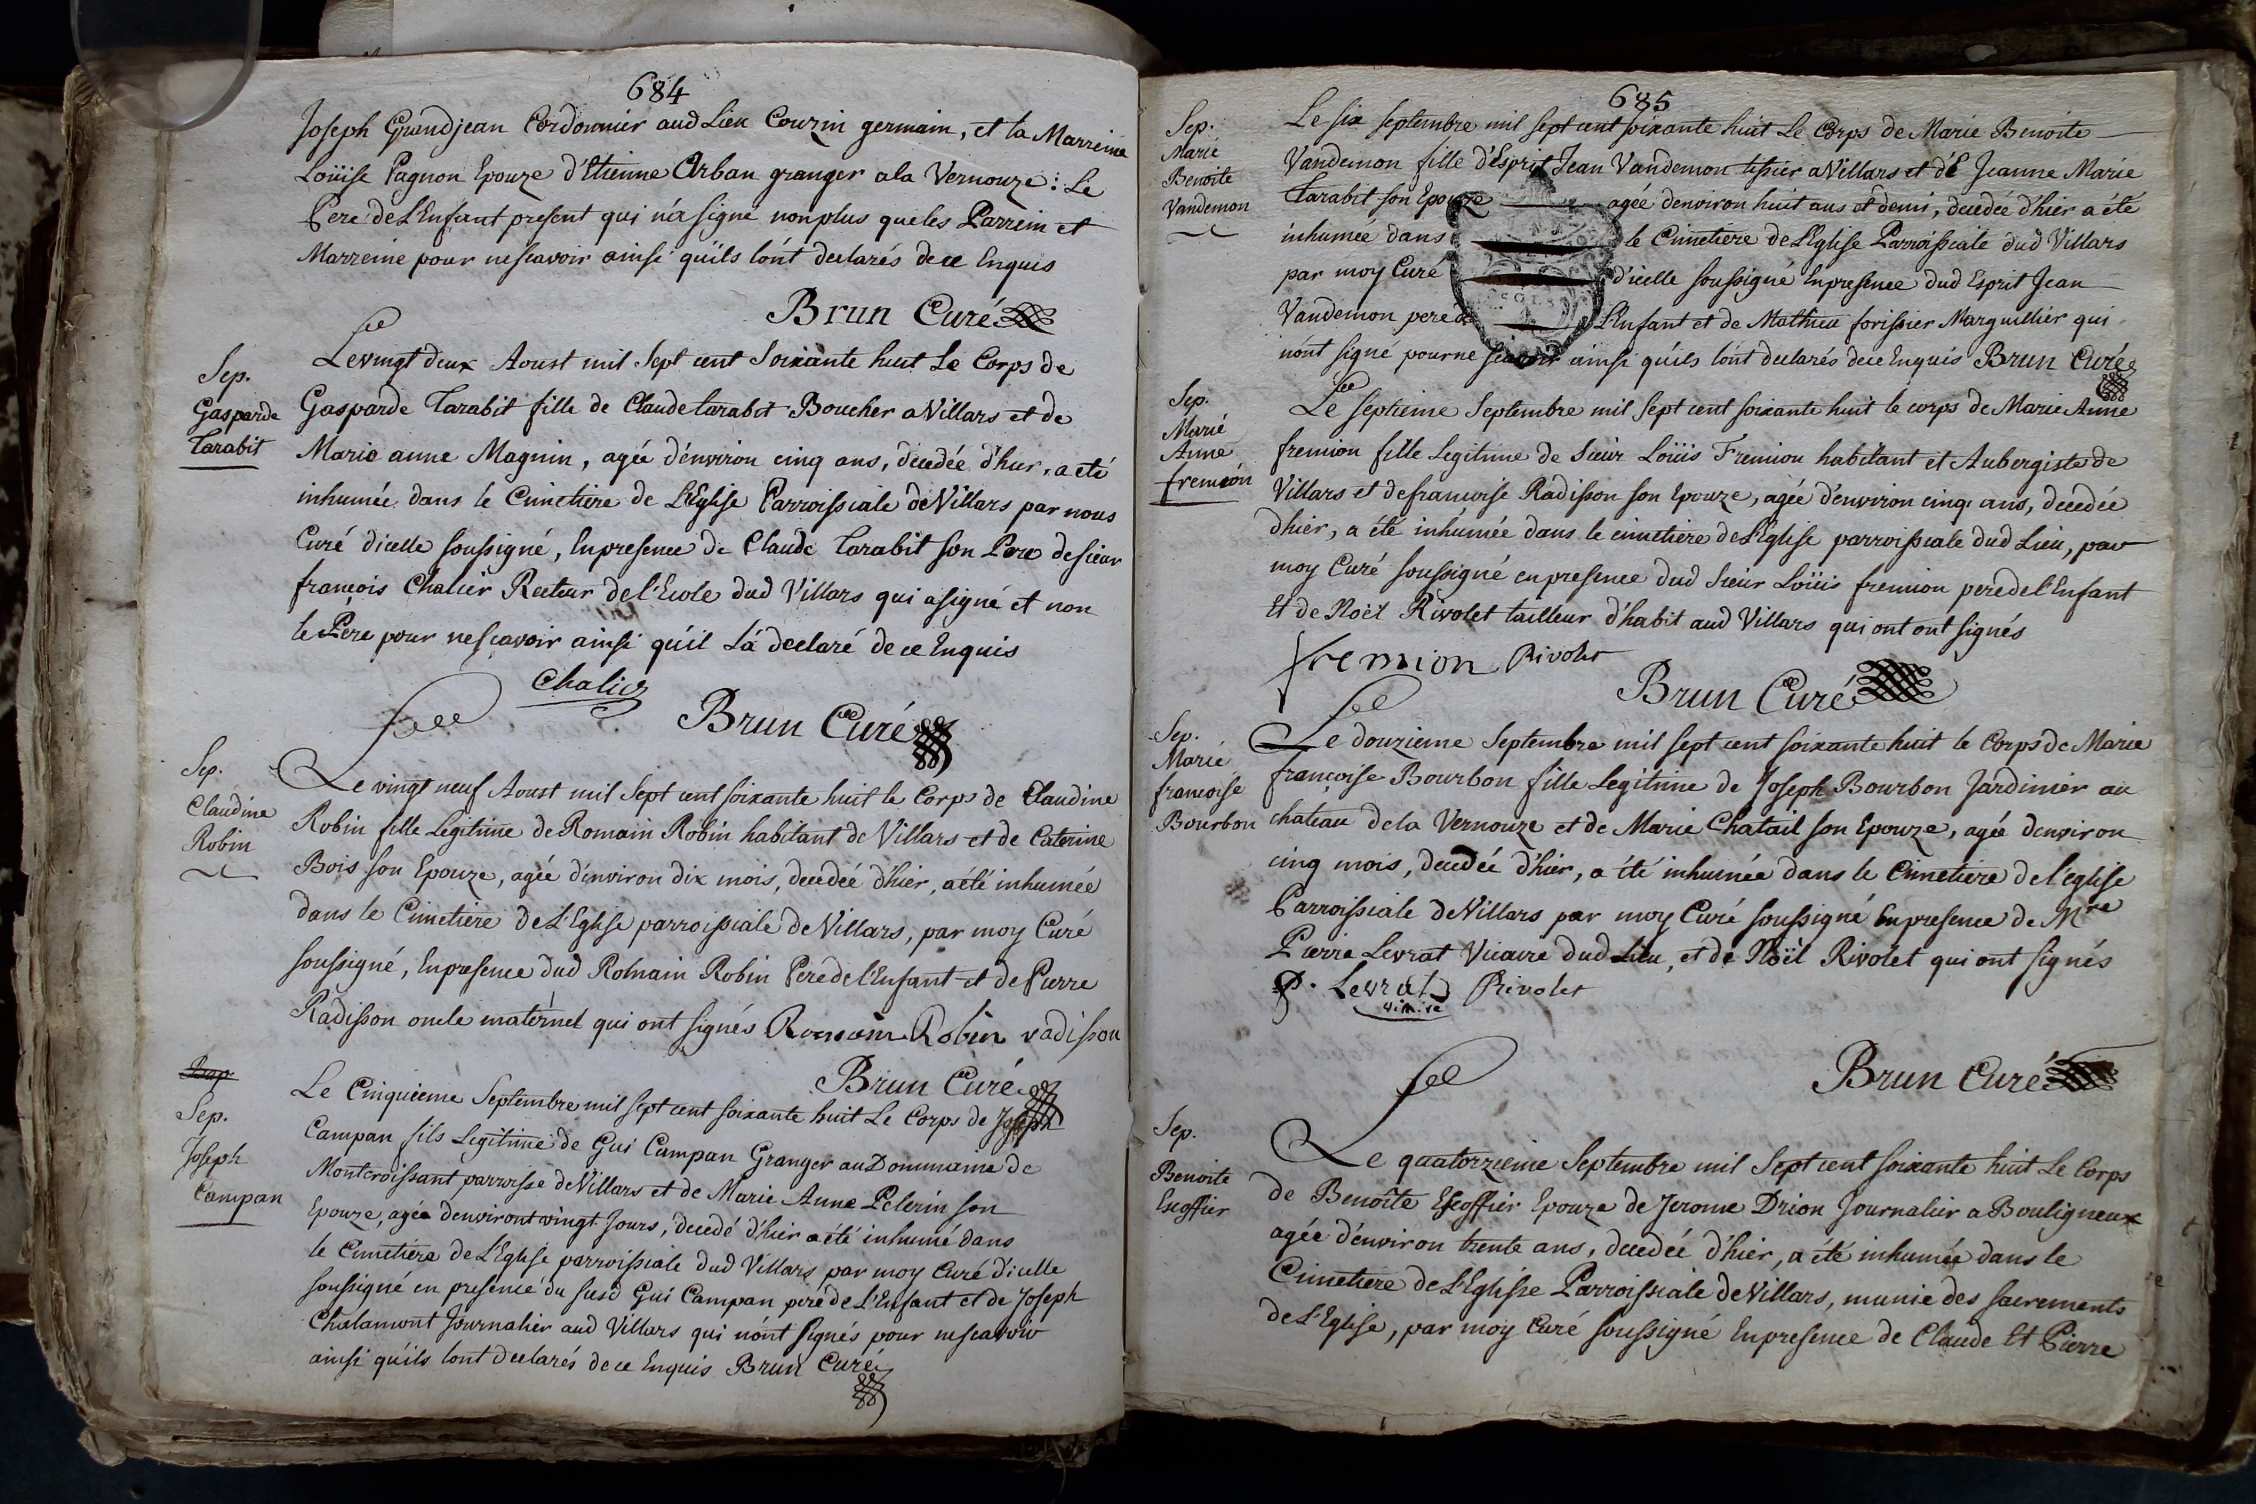 684
Joseph Grandjean Cordonnier aud Lieu Couzin germain, et la Marreine
Loüise Pagnon Epouze d'Etienne Orban granger ala Vernouze : Le
Pere de L'Enfant present qui n'a signé non plus que les Parrein et
Marreine pour ne scavoir ainsi qu'ils l'ont declarés de ce Enquis
Brun Curé
Sep.
Gasparde
Tarabit
Le vingt deux Aoust mil Sept cent Soixante huit Le Corps de
Gasparde Tarabit fille de Claude tarabit Boucher a Villars et de
Marie anne Magnin, agée d'environ cinq ans, decedée d'hier, a eté
inhumée dans le Cimetiere de L'Eglise Parroissiale de Villars par nous
Curé d'icelle soussigné, En presence de Claude Tarabit son Pere de sieur
françois Chalier Recteur de l'Ecole dud Villars qui a signé et non
le Père pour ne scavoir ainsi qu'il L'a declaré de ce Enquis
Chalier
Brun Curé
Sep.
Claudine
Robin
Le vingt neuf Aoust mil Sept cent soixante huit le Corps de Claudine
Robin fille Legitime de Romain Robin habitant de Villars et de Caterine
Bois son Epouze, agée d'environ dix mois, decedée d'hier, a été inhumée
dans le Cimetiere de L'Eglise parroissiale de Villars, par moy Curé
soussigné, En presence dud Romain Robin Pere de l'Enfant et de Pierre
Radisson oncle maternel qui ont signés Romain Robin radisson
Brun Curé
Bap.
Sep.
Joseph
Campan
Le Cinquieme Septembre mil sept cent soixante huit Le Corps de Joseph
Campan fils Legitime de Gui Campan Granger au Dommaine de
Montcroissant parroisse de Villars et de Marie Anne Pelerin son
Epouze, agée d'environt vingt Jours, decedé d'hier a été inhumé dans
le Cimetiere de L'Eglise parroissiale dud Villars par moy Curé d'icelle
soussigné en presence du susd Gui Campan pere de L'Enfant et de Joseph
Chalamont Journalier aud Villars qui n'ont signés pour ne scavoir
ainsi qu'ils l'ont declarés de ce Enquis Brun Curé
685
Sep.
Marie
Benoite
Vandemon
Le six septembre mil sept cent soixante huit Le Corps de Marie Benoite
Vandemon fille d'Esprit Jean Vandemon tissier a Villars et d'E Jeanne Marie
Tarabit son Epouze agée d'environ huit ans et demi, decedée d'hier a été
inhumee dans le Cimetiere de L'Eglise Parroissiale dud Villars
par moy Curé d'icelle soussigné En presence dud Esprit Jean
Vandemon pere de L'Enfant et de Mathieu forissier Marguillier qui
n'ont signé pour ne scavoir ainsi qu'ils l'ont declarés de ce Enquis Brun Curé
Sep.
Marie
Anne
fremion
Le septieme Septembre mil Sept cent soixante huit le corps de Marie Anne
fremion fille Legitime de Sieur Loüis Fremion habitant et Aubergiste de
Villars et de francoise Radisson son Epouze, agée d'environ cinq ans, decedée
d'hier, a été inhumée dans le cimetiere de L'Eglise parroissiale dud Lieu, par
moy Curé soussigné en presence dud Sieur Loüis fremion pere de l'Enfant
Et de Noël Rivolet tailleur d'habit aud Villars qui ont ont signés
fremion Rivolet
Brun Curé
Sep.
Marie
francoise
Bourbon
Le douzieme Septembre mil sept cent soixante huit le Corps de Marie
françoise Bourbon fille Legitime de Joseph Bourbon Jardinier au
chateau de la Vernouze et de Marie Chatail son Epouze, agée d'environ
cinq mois, decedée d'hier, a été inhumée dans le Cimetiere de l'eglise
Parroissiale de Villars par moy Curé soussigné En presence de Mre
Pierre Levrat Vicaire dud Lieu, et de Noël Rivolet qui ont signés
P. Levrat Rivolet
vicaire
Brun Curé
Sep.
Benoite
Escoffier
Le quatorzieme Septembre mil Sept cent soixante huit Le Corps
de Benoîte Escoffier Epouze de Jerome Drion Journalier a Bouligneux
agée d'environ trente ans, decedée d'hier, a été inhumée dans le
Cimetiere de L'Eglise Parroissiale de Villars, munie des sacrements
de L'Eglise, par moy Curé soussigné En presence de Claude Et Pierre